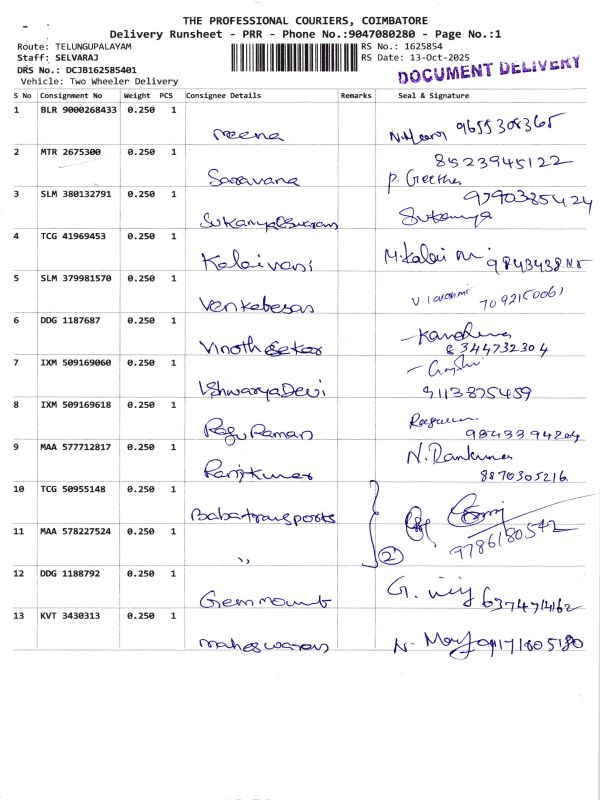 THE PROFESSIONAL COURIERS, COIMBATORE
Delivery Runsheet - PRR - Phone No.:9047080280 - Page No.:1
Route: TELUNGUPALAYAM
RS No.: 1625854
Staff: SELVARAJ
RS Date: 13-Oct-2025
DOCUMENT DELIVERY
DRS No.: DCJB162585401
Vehicle: Two Wheeler Delivery
S No Consignment No Weight PCS Consignee Details Remarks Seal & Signature
1 BLR 9000268433 0.250 1
Meena 9655308365
2 MTR 2675300 0.250 1 8523945122
Saravana P. Geetha
3 SLM 380132791 0.250 1 9790385424
Sukanya Eswaran Sukanya
4 TCG 41969453 0.250 1
Kalaivani M.Kalai
5 SLM 379981570 0.250 1
Venkatesan 7092150061
6 DDG 1187687 0.250 1
Vinoth 8344732304
7 IXM 509169060 0.250 1
IshwaryaDevi 9113875459
8 IXM 509169618 0.250 1
Ragu Raman 9843394204
9 MAA 577712817 0.250 1
Ranjitkumar 8870305216
10 TCG 50955148 0.250 1
Babatransports
11 MAA 578227524 0.250 1 9786180542
,, 2
12 DDG 1188792 0.250 1
Gemmount G. 6374714162
13 KVT 3430313 0.250 1
maheswaran N.